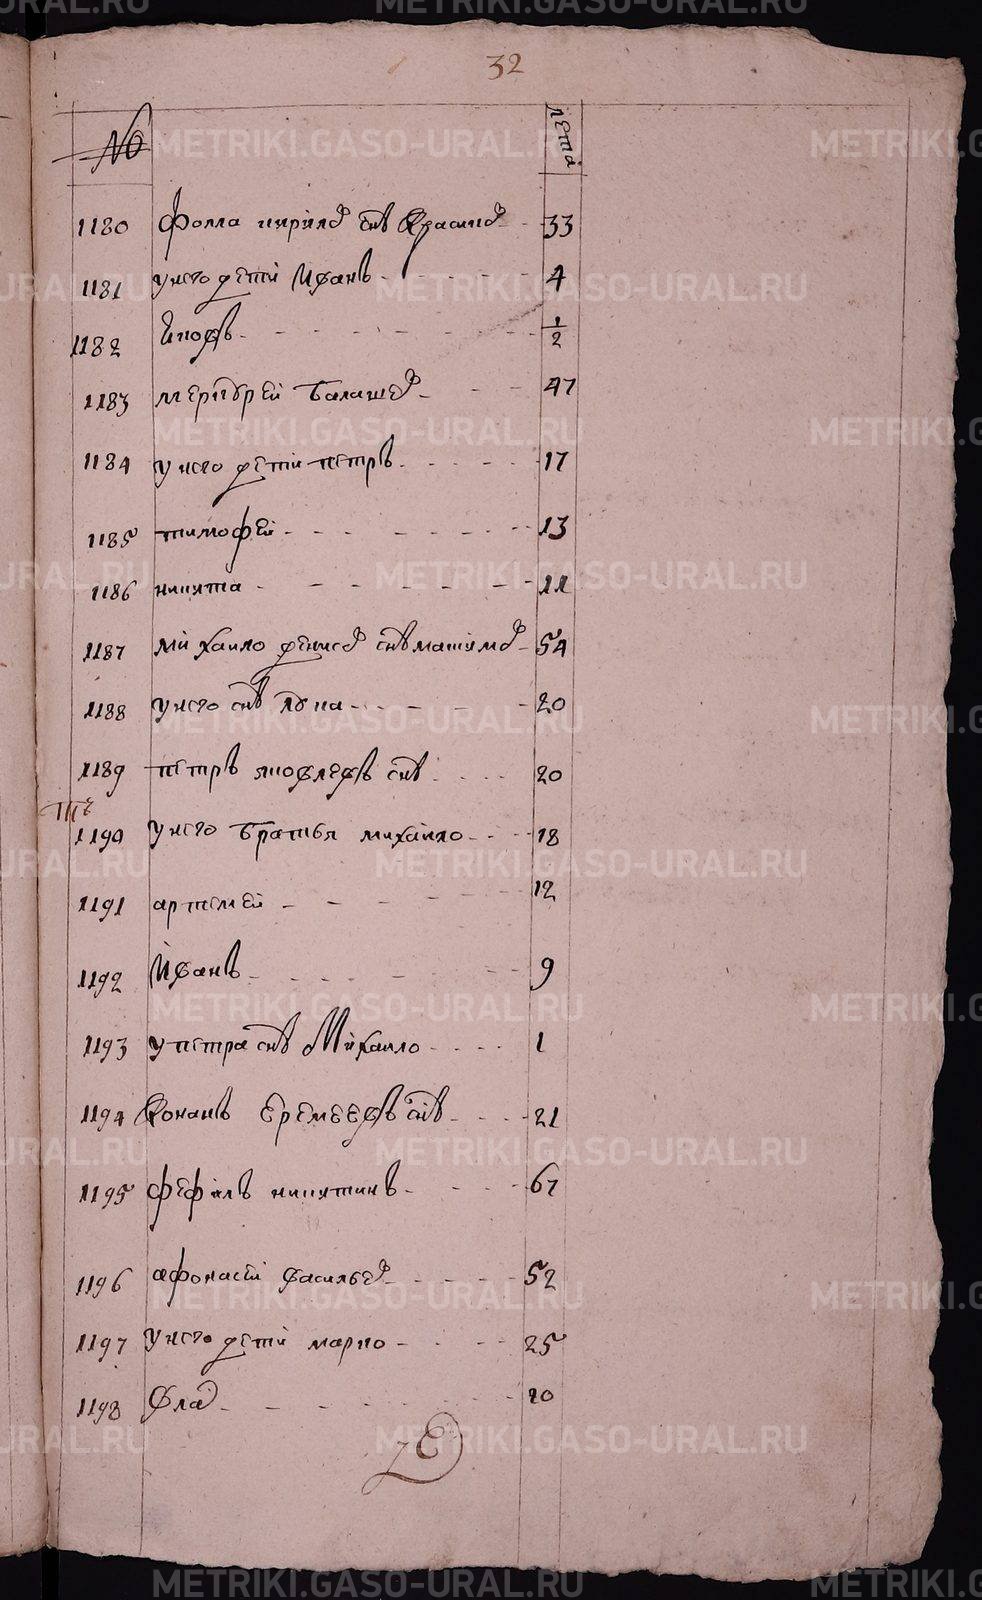 32
№ лета
1180 Фома кирило снъ Красико 33
1181 у него дети Иванъ 4
1182 Якофъ 1/2
1183 меркурей балашев 47
1184 у него дети петръ 17
1185 тимофей 13
1186 никита 11
1187 михаило денисов снъ 54
1188 у него снъ лука 20
1189 петръ яковлевъ снъ 20
1190 у него братья михаило 18
1191 артемей 12
1192 Иванъ 9
1193 у петра снъ Михаило 1
1194 Конанъ Еремеевъ снъ 21
1195 фефилъ никитинъ 67
1196 афонасей васильев 52
1197 у него дети марко 25
1198 20
METRIKI.GASO-URAL.RU